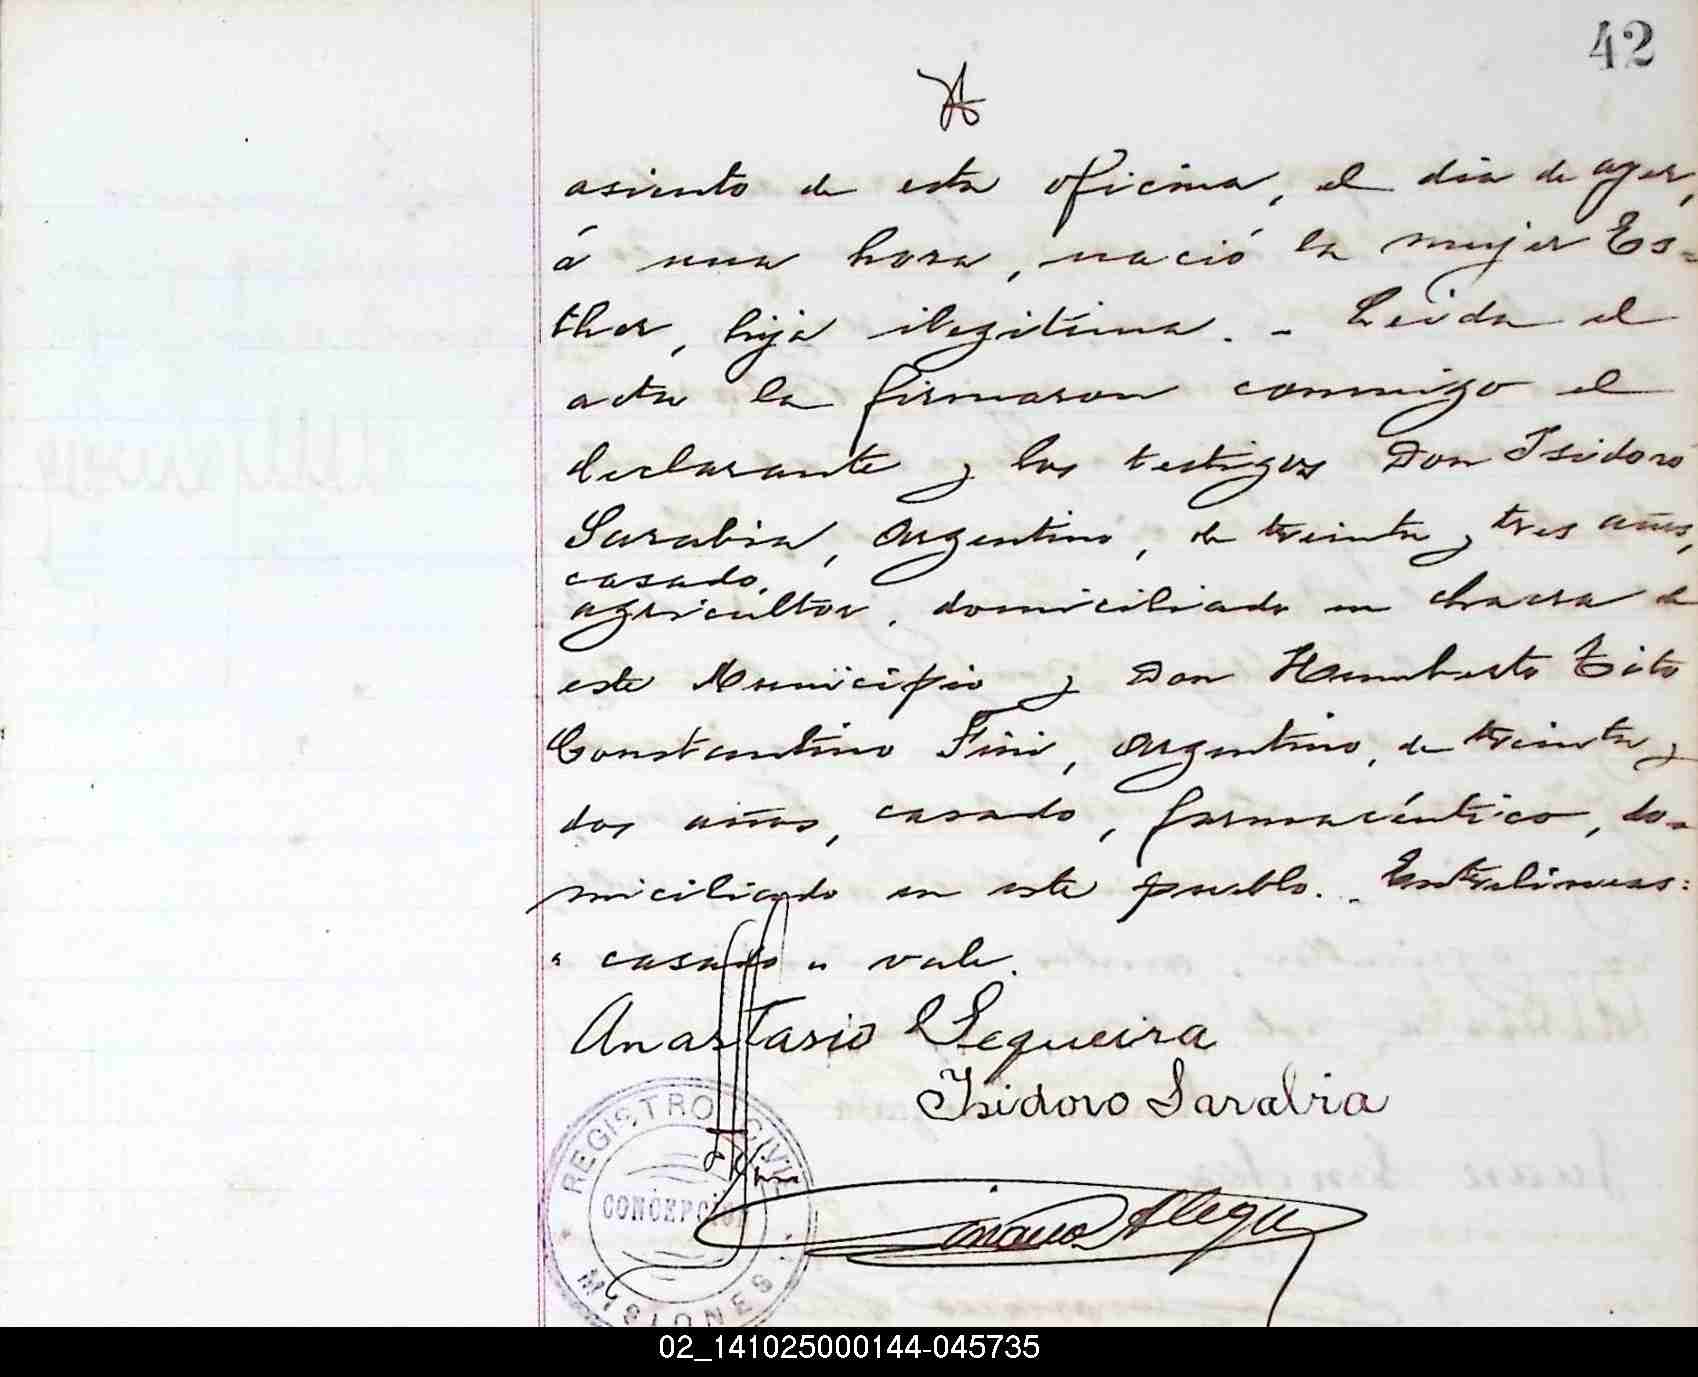 42
asiento de esta oficina, el dia de ayer,
á una hora, nació la mujer Es=
ther, hija ilegitima. - Leida el
acta la firmaron conmigo el
declarante y los testigos Don Isidoro
Sarabia, Argentino, de treinta y tres años,
casado,
agricultor, domiciliado en chacra de
este Municipio y Don Humberto Tito
Constantino Fini, Argentino, de treinta y
dos años, casado, farmacéutico, do-
miciliado en este pueblo. - Entrelineas:
"casado" vale.
Anastasio Sequeira
Isidoro Sarabia
REGISTRO CIVIL
CONCEPCION
MISIONES
02_141025000144-045735